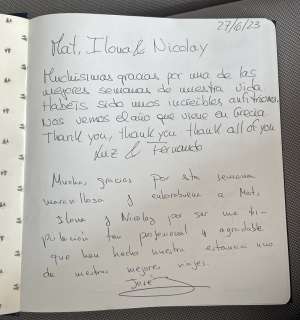 27/6/23
Mat, Ilona & Nicolay
Muchísimas gracias por una de las
mejores semanas de nuestra vida
Habéis sido unos increíbles anfitriones.
Nos vemos el año que viene en Grecia.
Thank you, thank you thank all of you
Luz & Fernando
Muchas gracias por esta semana
maravillosa y enhorabuena a Mat,
Ilona y Nicolay por ser una tri-
pulación tan profesional y agradable
que han hecho nuestra estancia uno
de nuestros mejores viajes.
José